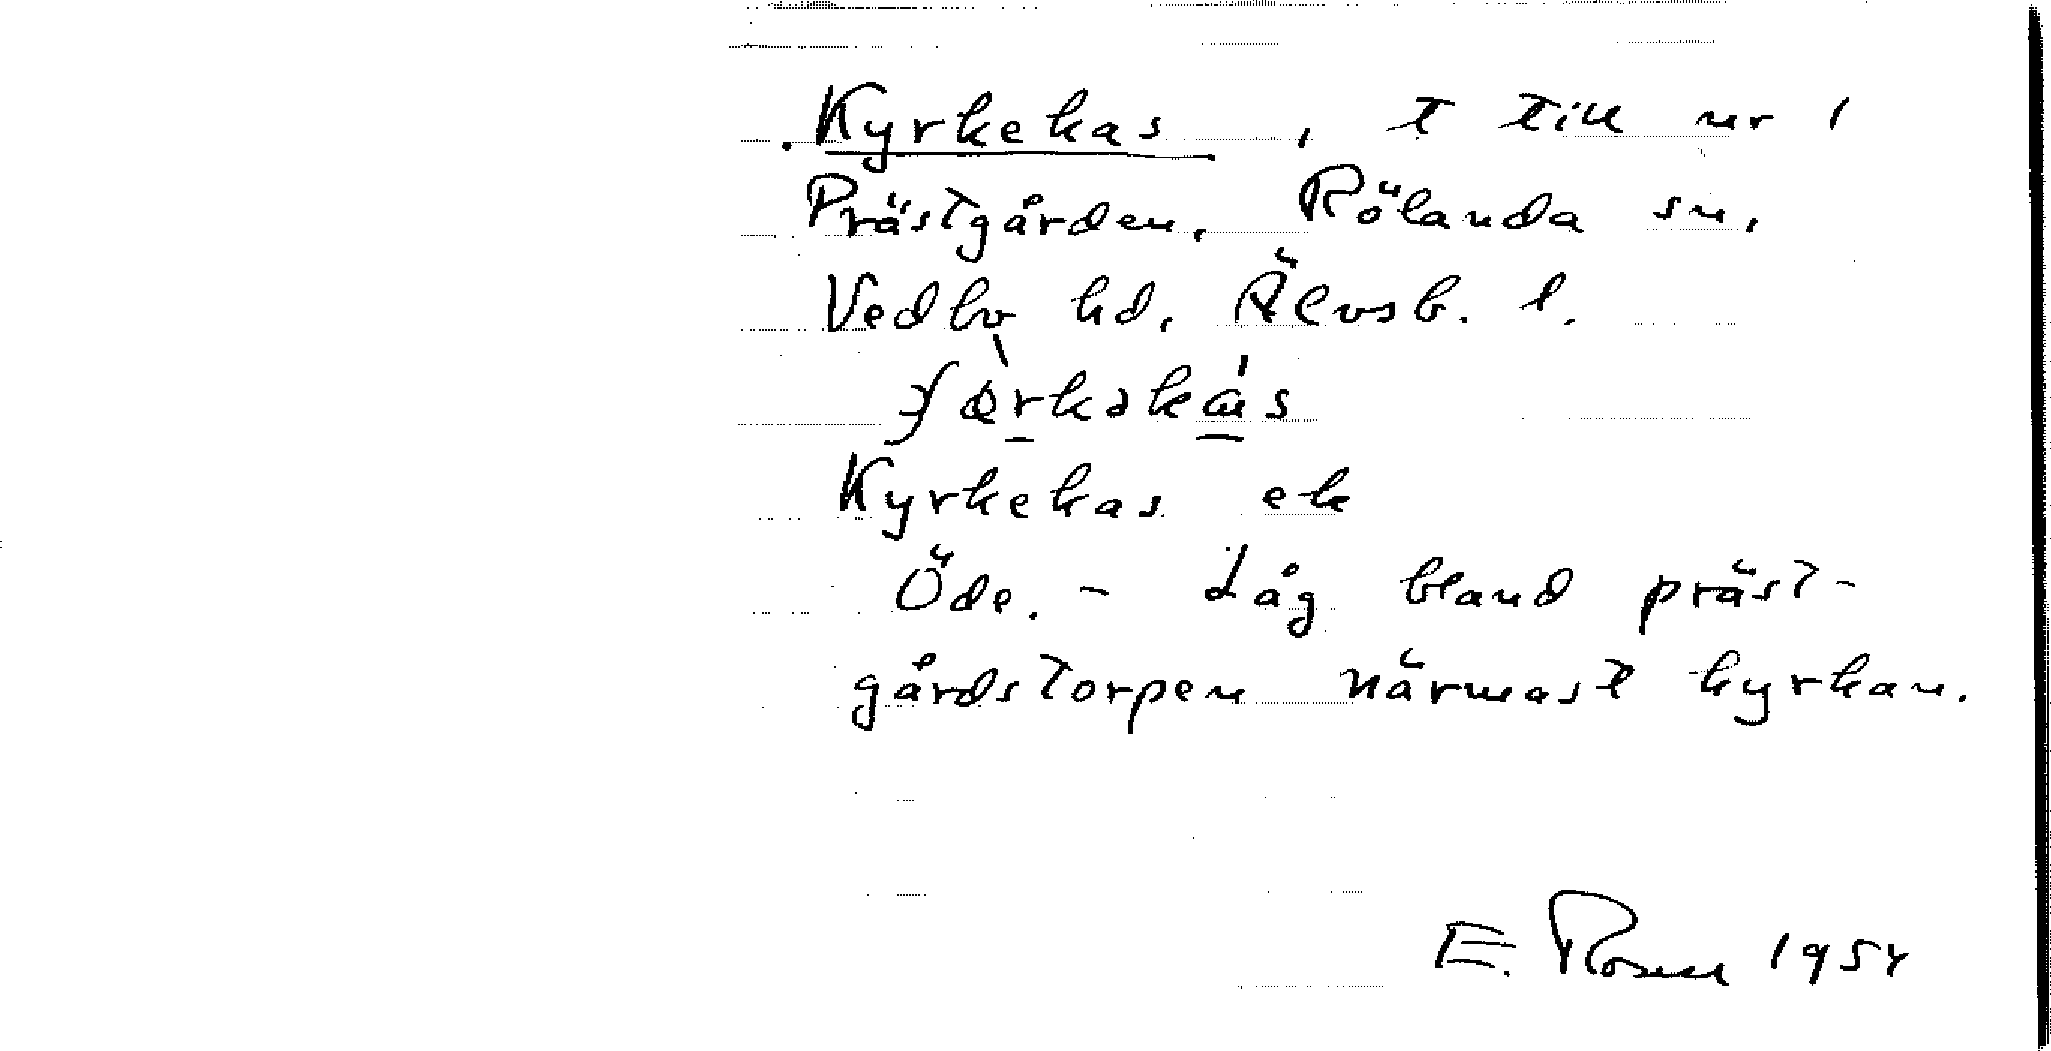 Kyrkekas, t till nr 1
Prästgården, Rölanda sn,
Vedbo hd, Älvsb. l.
Kyrkekas ek
Öde. - Låg bland präst-
gårdstorpen närmast kyrkan.
E. Rosell 1954